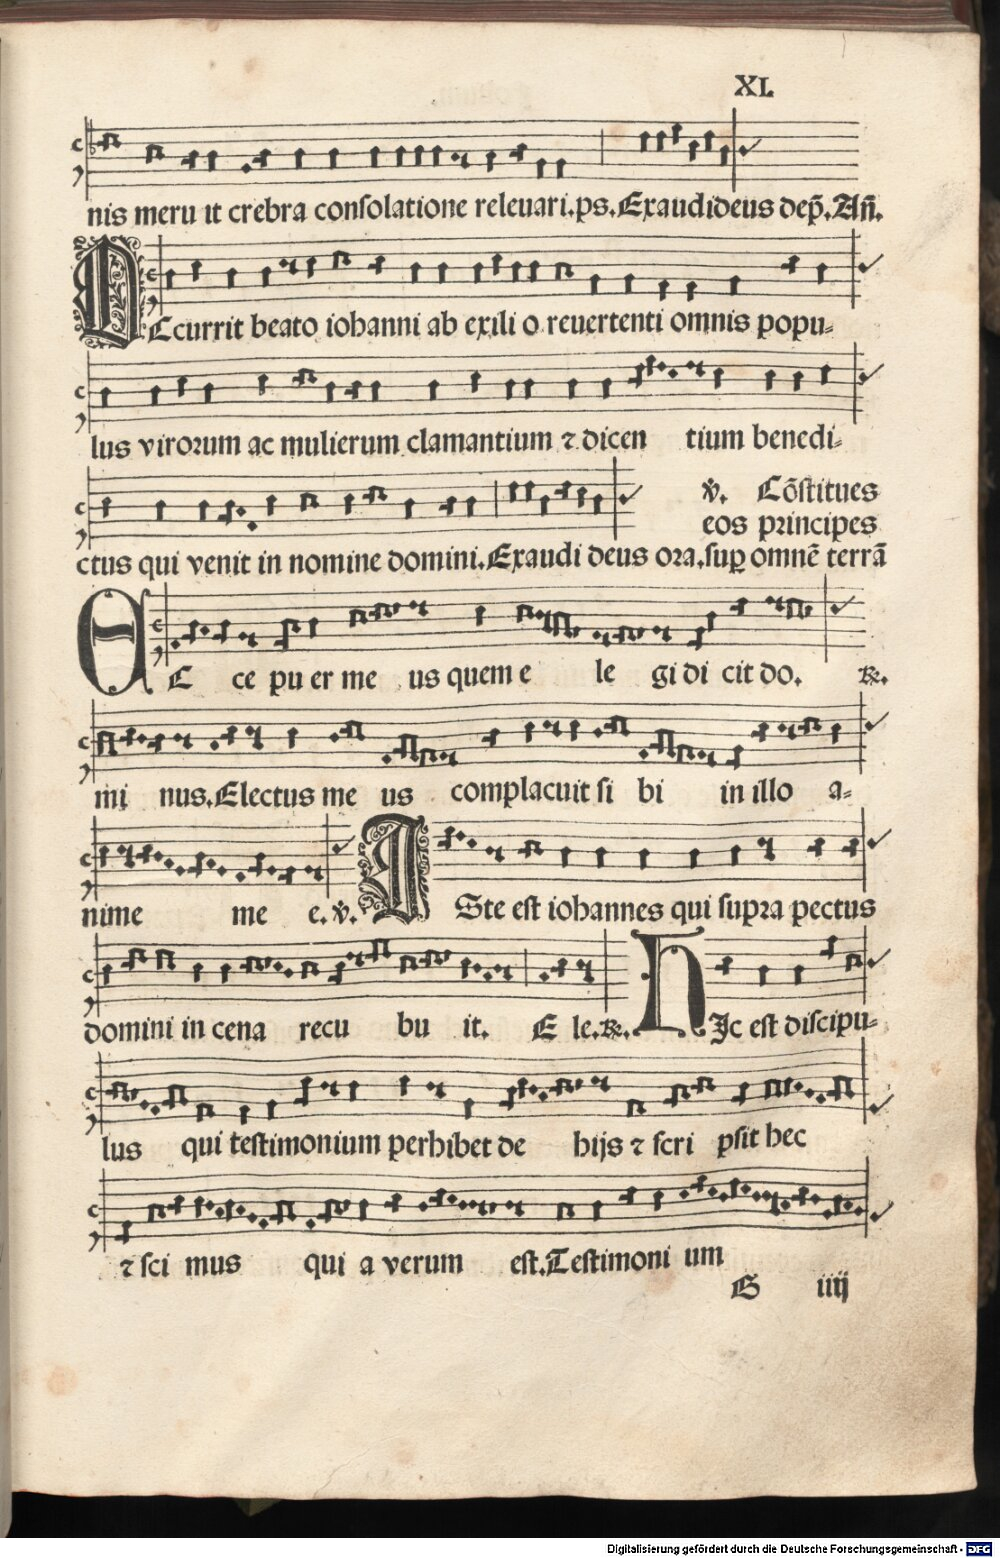 XL
nis meru it crebra conſolatione releuari.ps.Exaudideus dep̃.Añ.
OCcurrit beato iohanni ab exili o reuertenti omnis popu⸗
lus virorum ac mulierum clamantium ⁊ dicen tium benedi⸗
v̊. Cõſtitues
eos principes
ctus qui venit in nomine domini.Exaudi deus ora.ſup̱ omnẽ terrã
EC ce pu er me us quem e le gi di cit do. ℟.
mi nus.Electus me us complacuit ſi bi in illo a⸗
nime me e.v̊. ISte eſt iohannes qui ſupra pectus
domini in cena recu bu it. E le.℟. HIc eſt diſcipu⸗
lus qui teſtimonium perhibet de hijs ⁊ ſcri pſit hec
⁊ ſci mus qui a verum eſt.Teſtimoni um
G iiij
Digitalisierung gefördert durch die Deutsche Forschungsgemeinschaft - DFG